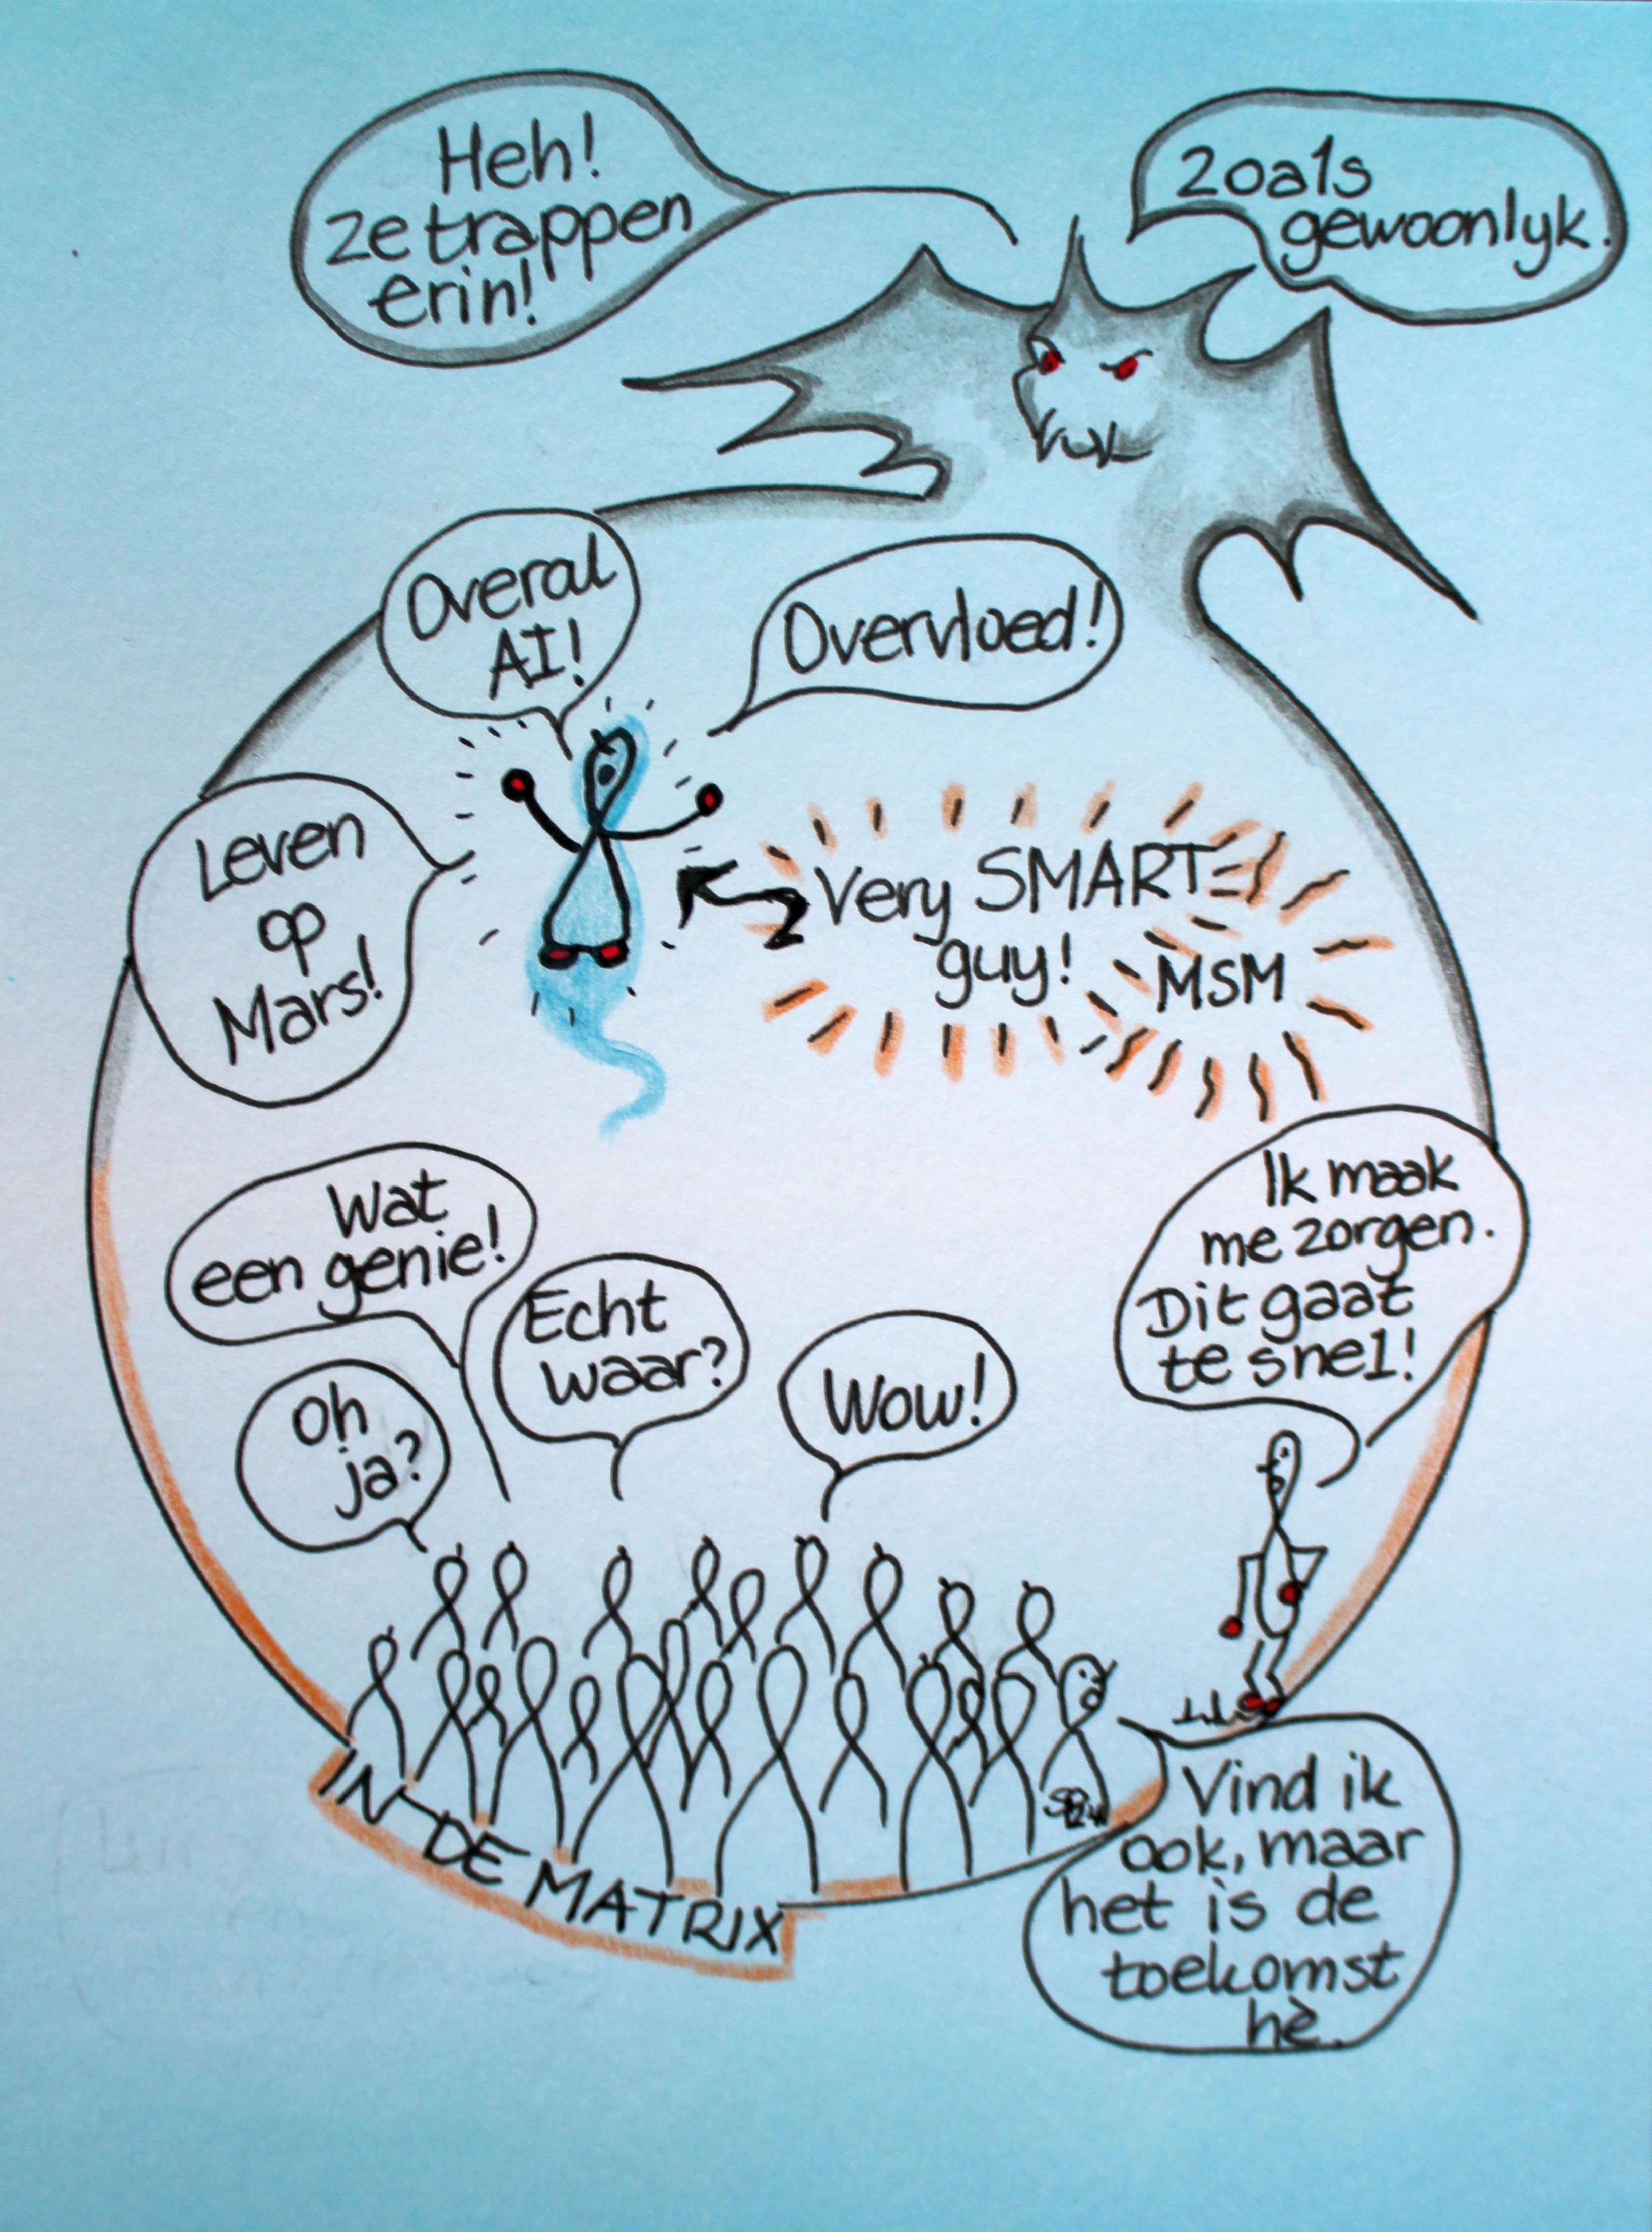 Heh!
ze trappen
erin!
zoals
gewoonlyk.
Overal
AI!
Overvloed!
Leven
op
Mars!
Very SMART
guy!
MSM
Wat
een genie!
Echt
waar?
Oh
ja?
Wow!
Ik maak
me zorgen.
Dit gaat
te snel!
IN DE MATRIX
Vind ik
ook, maar
het is de
toekomst
hè.